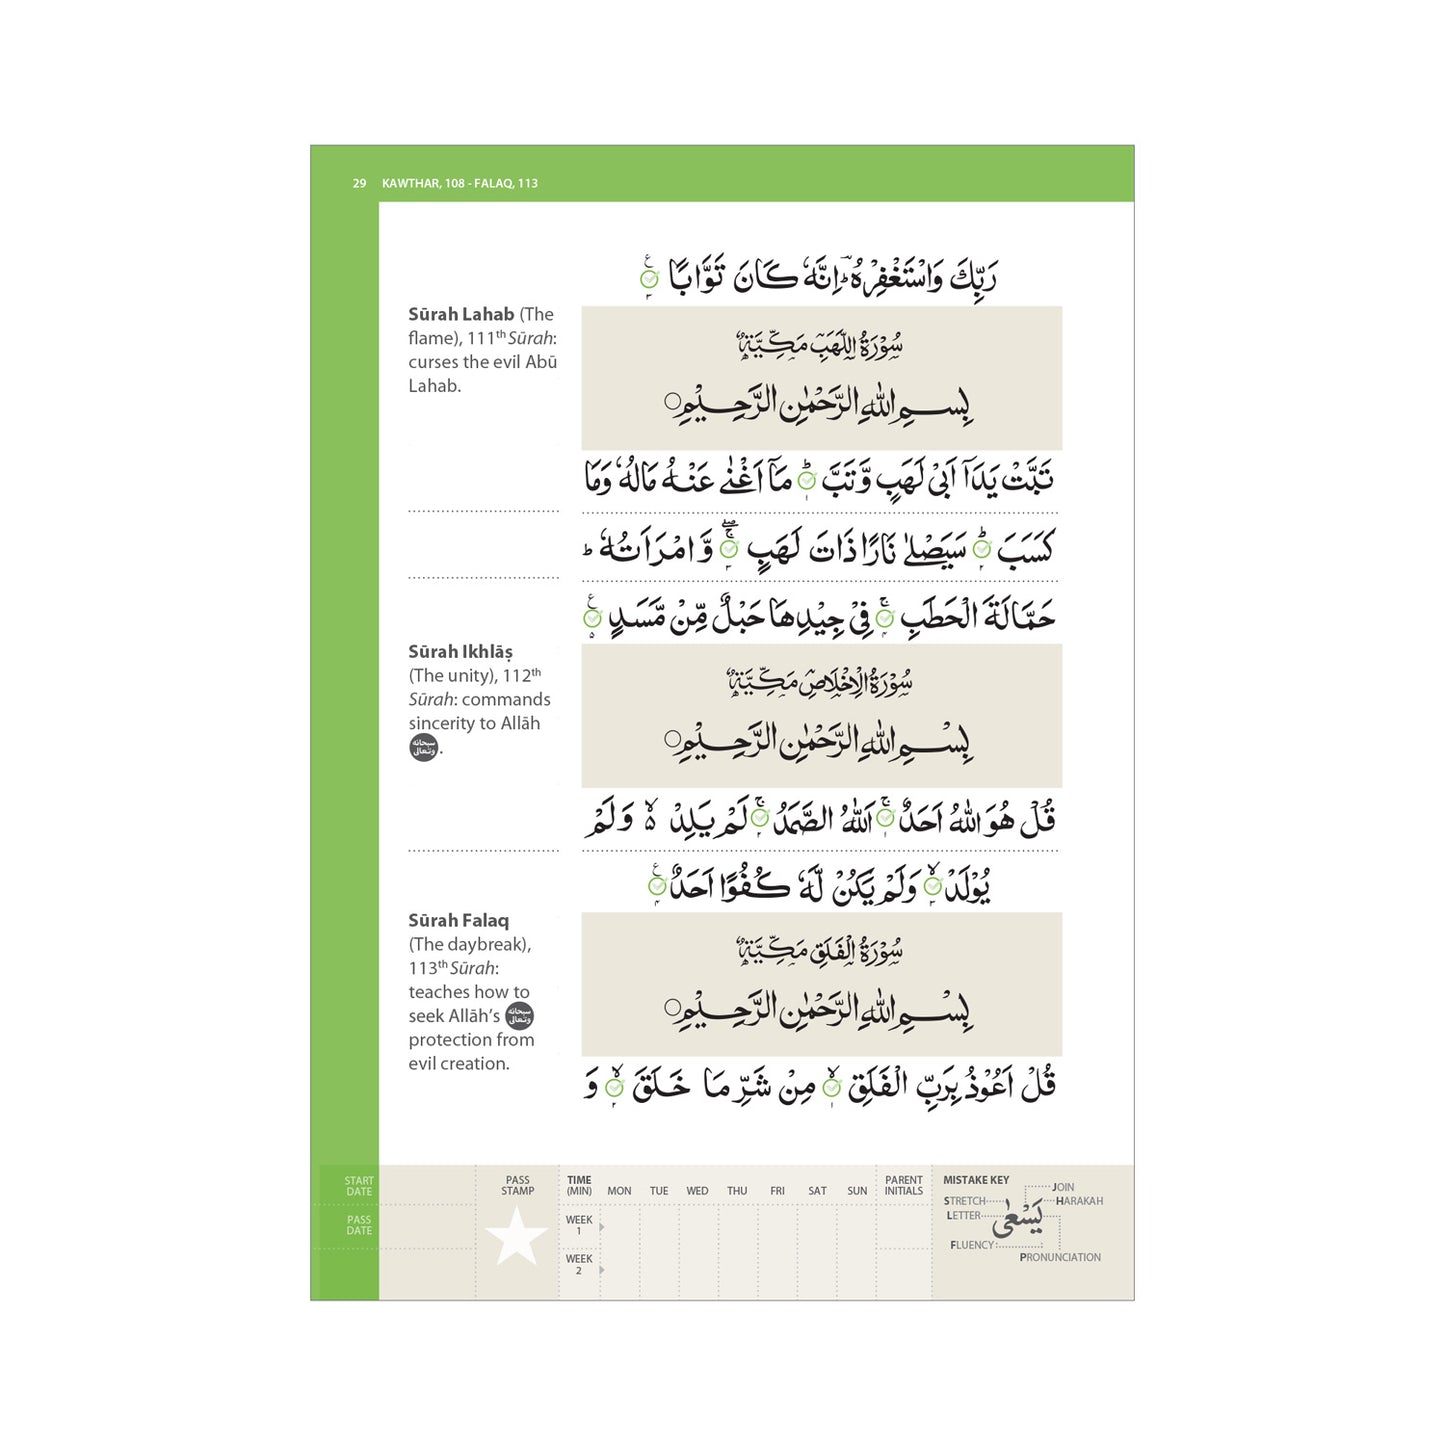 29 KAWTHAR, 108 - FALAQ, 113
رَبِّكَ وَاسْتَغْفِرْهُ ؔؕ اِنَّهٗ كَانَ تَوَّابًا
Sūrah Lahab (The
flame), 111th Sūrah:
curses the evil Abū
Lahab.
سُوْرَةُ اللَّهَبِ مَكِّيَّةٌ
بِسْمِ اللّٰهِ الرَّحْمٰنِ الرَّحِيْمِ
تَبَّتْ يَدَاۤ اَبِيْ لَهَبٍ وَّتَبَّ ؕ مَاۤ اَغْنٰى عَنْهُ مَالُهٗ وَمَا
كَسَبَ ؕ سَيَصْلٰى نَارًا ذَاتَ لَهَبٍ ۚۖ وَّ امْرَاَتُهٗ ؕ
حَمَّالَةَ الْحَطَبِ ۚ فِيْ جِيْدِهَا حَبْلٌ مِّنْ مَّسَدٍ
Sūrah Ikhlāṣ
(The unity), 112th
Sūrah: commands
sincerity to Allāh
سبحانه وتعالى.
سُوْرَةُ الْاِخْلَاصِ مَكِّيَّةٌ
بِسْمِ اللّٰهِ الرَّحْمٰنِ الرَّحِيْمِ
قُلْ هُوَ اللّٰهُ اَحَدٌ ۚ اَللّٰهُ الصَّمَدُ ۚ لَمْ يَلِدْ ۙ۬ وَلَمْ
يُوْلَدْ ۙ وَلَمْ يَكُنْ لَّهٗ كُفُوًا اَحَدٌ
Sūrah Falaq
(The daybreak),
113th Sūrah:
teaches how to
seek Allāh’s سبحانه وتعالى
protection from
evil creation.
سُوْرَةُ الْفَلَقِ مَكِّيَّةٌ
بِسْمِ اللّٰهِ الرَّحْمٰنِ الرَّحِيْمِ
قُلْ اَعُوْذُ بِرَبِّ الْفَلَقِ ۙ مِنْ شَرِّ مَا خَلَقَ ۙ وَ
START DATE
PASS DATE
PASS STAMP
TIME (MIN) MON TUE WED THU FRI SAT SUN
WEEK 1
WEEK 2
PARENT INITIALS
MISTAKE KEY
JOIN
STRETCH HARAKAH
LETTER يَسْعٰى
FLUENCY
PRONUNCIATION